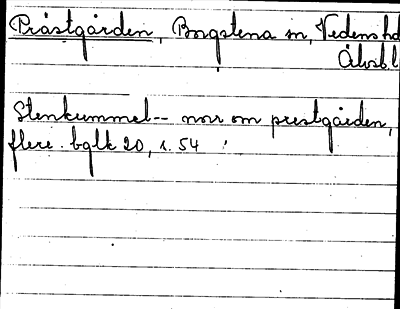 Prästgården, Borgstena sn, Vedens hd
Älvsbl
Stenkummel-- norr om prestgården,
flere. bglk 20, s. 54